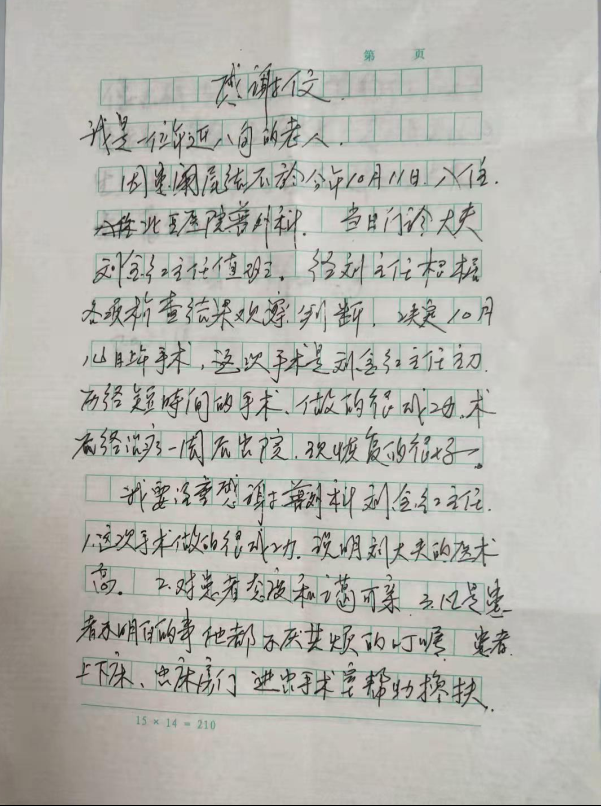 第 页
感谢信
我是一位年近八旬的老人.
因患阑尾结石於今年10月11日.入住.
北医医院普外科. 当日门诊大夫
刘金红主任值班。经刘主任根据
各项检查结果观察.判断.决定10月
14日上午手术,这次手术是刘金红主任主刀.
历经短时间的手术.做的很成功.术
后经治疗一周后出院.现恢复的很好。
我要深重感谢普外科刘金红主任.
1.这次手术做的很成功.说明刘大夫的医术
高。2.对患者态度和蔼可亲.3.凡是患
者不明白的事他都不厌其烦的叮嘱.患者.
上下床、出床房门进出手术室帮助搀扶.
15×14=210